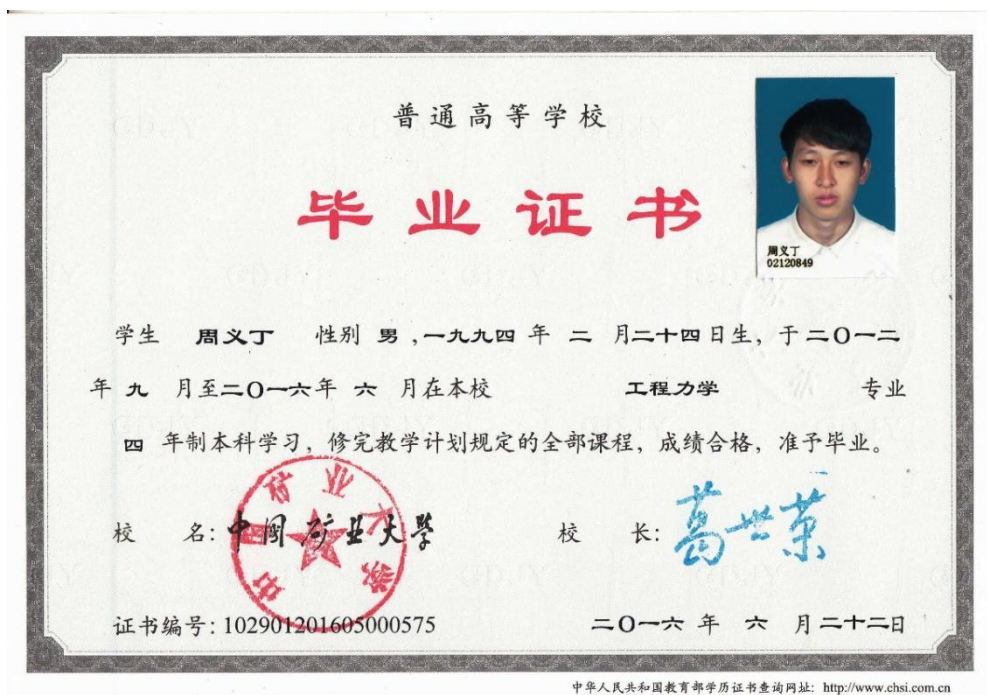 普通高等学校
毕业证书
周义丁
02120849
学生 周义丁 性别 男 ,一九九四 年 二 月二十四日生, 于二〇一二
年 九 月至二〇一六年 六 月在本校 工程力学 专业
四 年制本科学习, 修完教学计划规定的全部课程, 成绩合格, 准予毕业。
校 名: 中国矿业大学 校 长: 葛世荣
证书编号: 102901201605000575 二〇一六 年 六 月二十二日
中华人民共和国教育部学历证书查询网址: http://www.chsi.com.cn